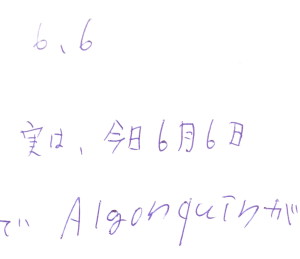 6、6
実は、今日6月6日
で Algonquinが